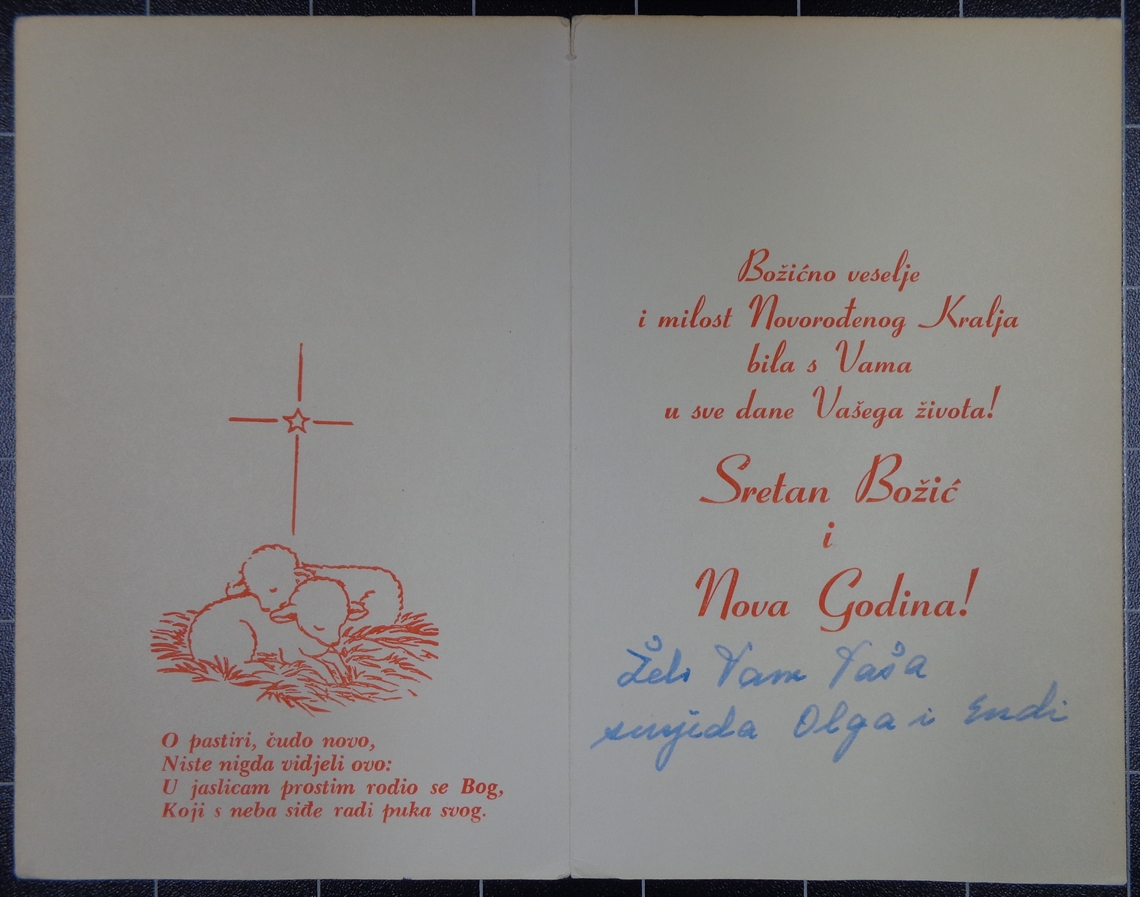 O pastiri, čudo novo,
Niste nigda vidjeli ovo:
U jaslicam prostim rodio se Bog,
Koji s neba siđe radi puka svog.
Božićno veselje
i milost Novorođenog Kralja
bila s Vama
u sve dane Vašega života!
Sretan Božić
i
Nova Godina!
Želi Vam Vaša
Olga i Endi